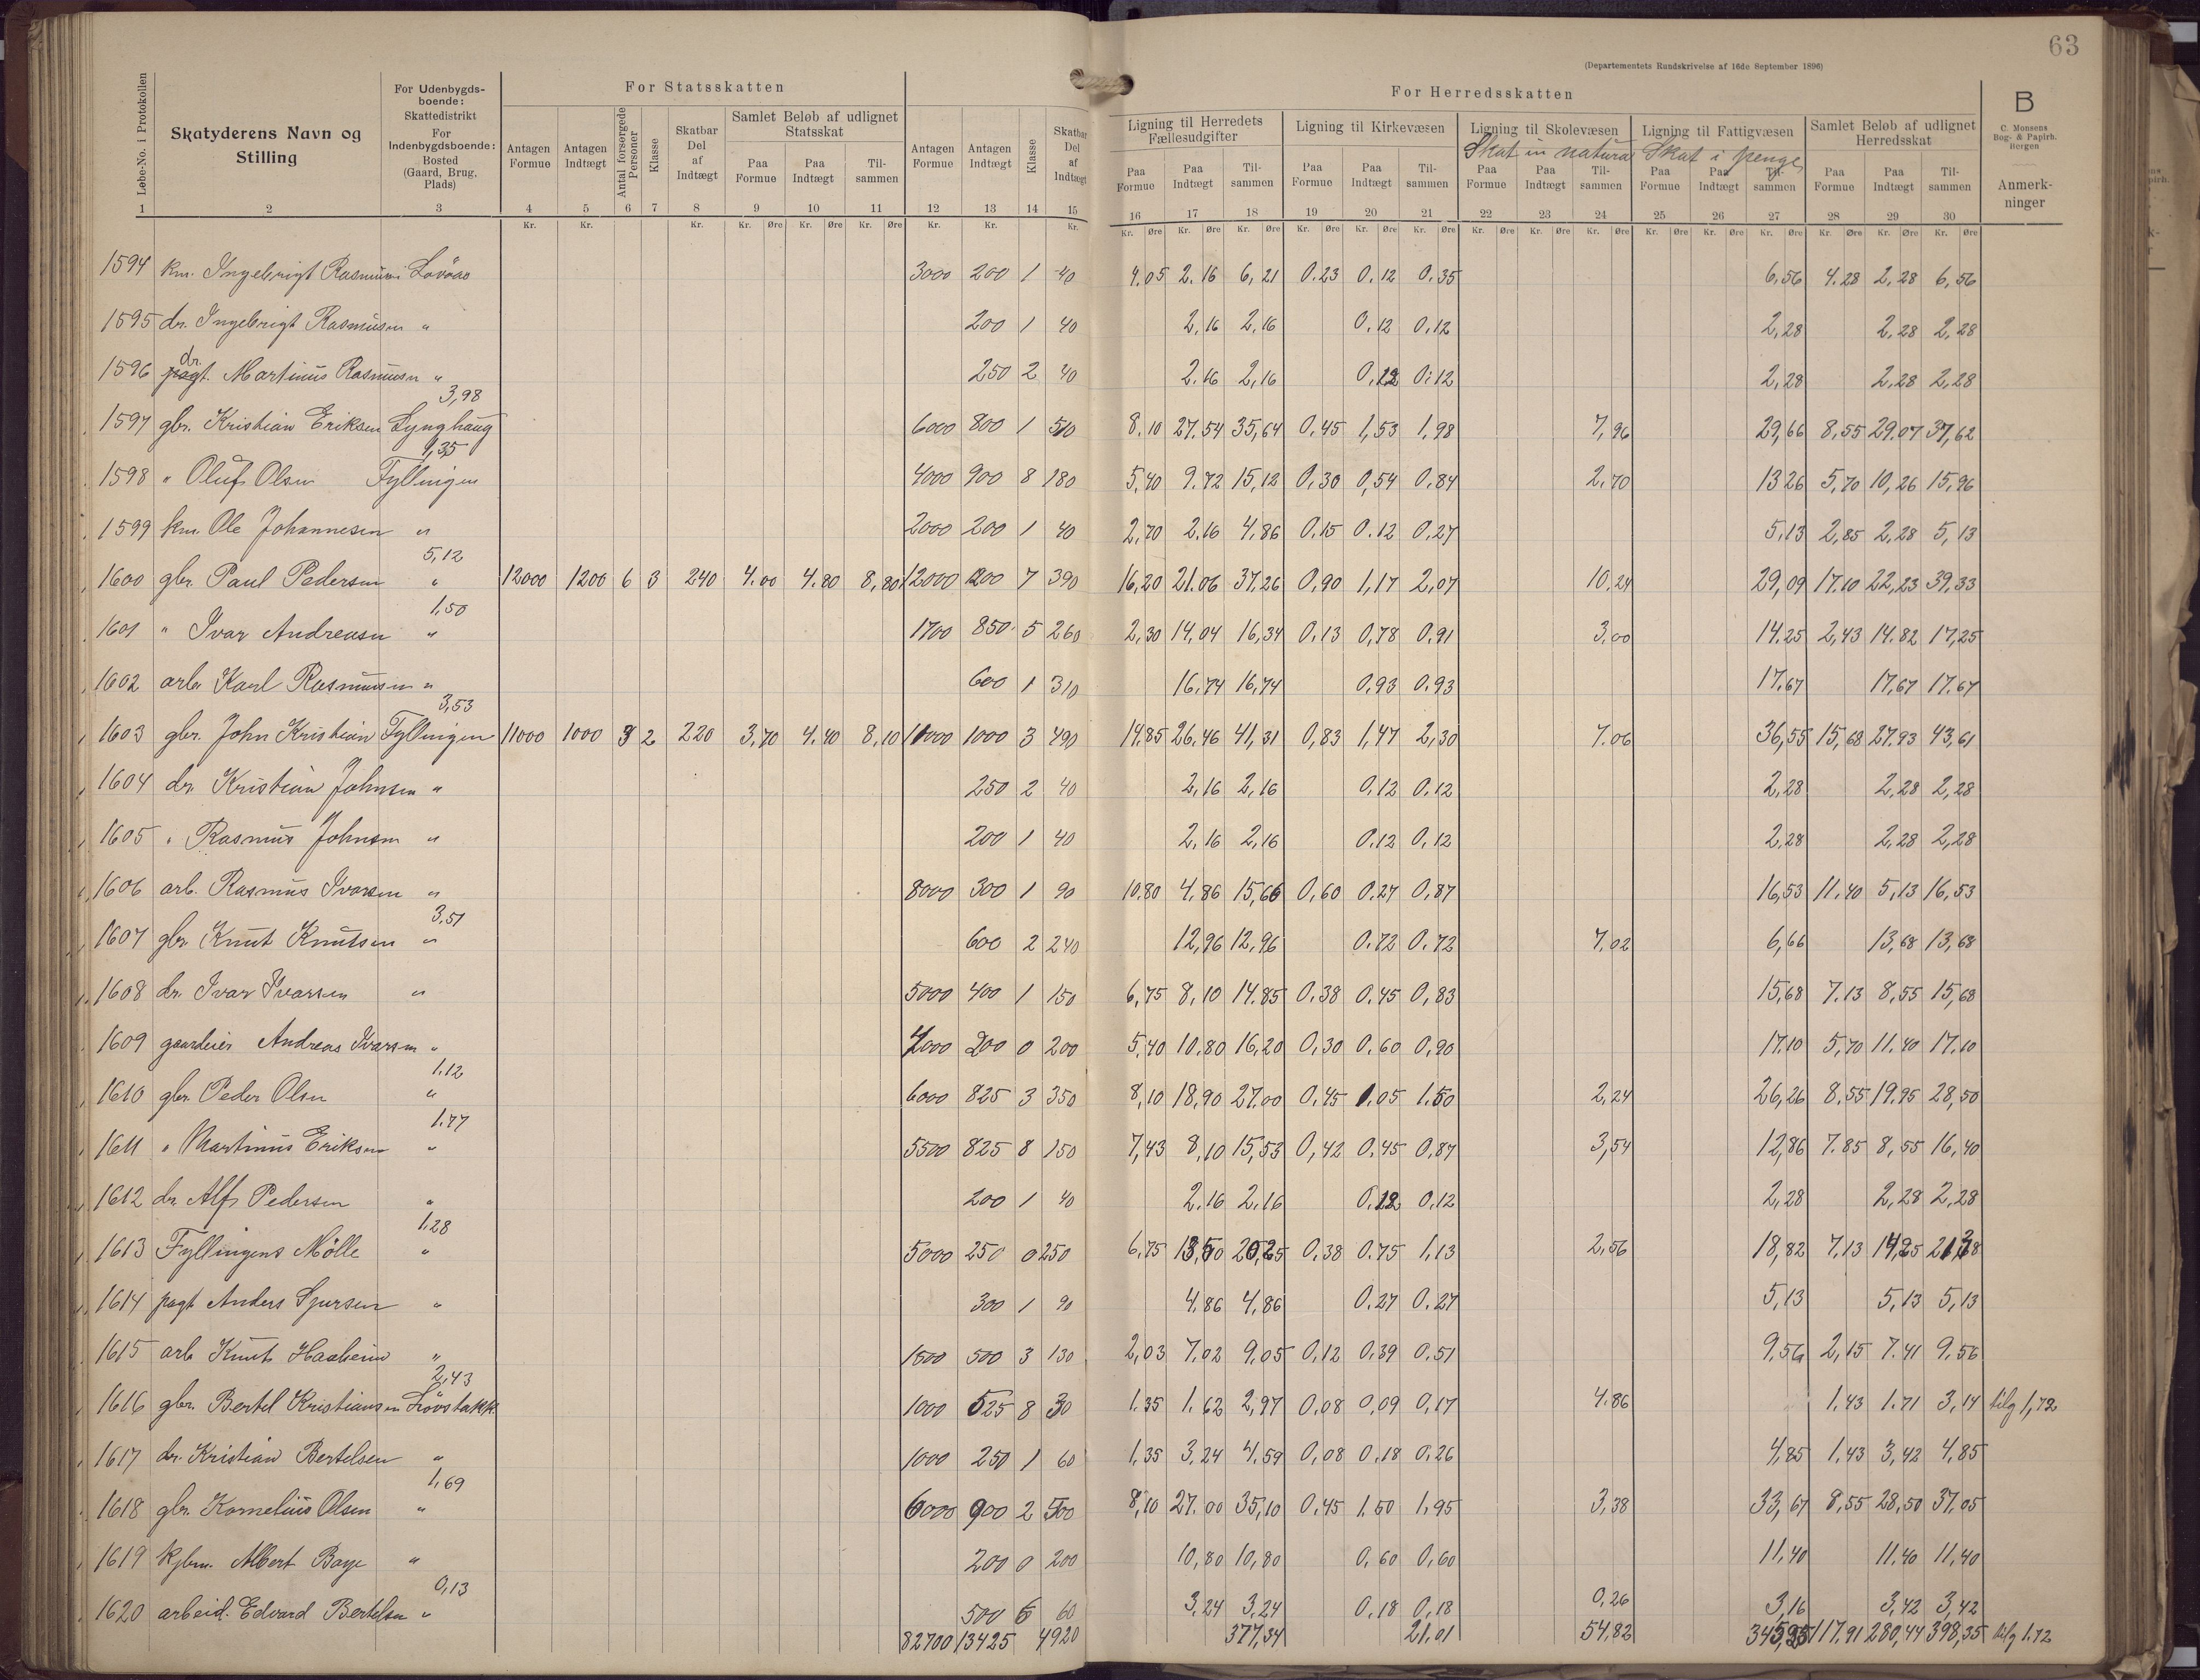 63
(Departementets Rundskrivelse af 16de September 1896)
For Statsskatten
For Herredsskatten
B
C. Monsens Bog- & Papirh. Bergen
Løbe-No. i Protokollen
Skatyderens Navn og Stilling
For Udenbygdsboende: Skattedistrikt For Indenbygdsboende: Bosted (Gaard, Brug, Plads)
Antagen Formue
Antagen Indtægt
Antal forsørgede Personer
Klasse
Skatbar Del af Indtægt
Samlet Beløb af udlignet Statsskat
Paa Formue
Paa Indtægt
Tilsammen
Antagen Formue
Antagen Indtægt
Klasse
Skatbar Del af Indtægt
Ligning til Herredets Fællesudgifter
Paa Formue
Paa Indtægt
Tilsammen
Ligning til Kirkevæsen
Paa Formue
Paa Indtægt
Tilsammen
Ligning til Skolevæsen
Skat in natura
Paa Formue
Paa Indtægt
Tilsammen
Ligning til Fattigvæsen
Skat i penge
Paa Formue
Paa Indtægt
Tilsammen
Samlet Beløb af udlignet Herredsskat
Paa Formue
Paa Indtægt
Tilsammen
Anmerkninger
1 2 3 4 5 6 7 8 9 10 11 12 13 14 15 16 17 18 19 20 21 22 23 24 25 26 27 28 29 30
1594 km. Ingebrigt Rasmusen Lövaas 3000 200 1 40 4.05 2.16 6,21 0.23 0,12 0.35 6,56 4.28 2,28 6,56
1595 dr. Ingebrigt Rasmusen " 200 1 40 2,16 2,16 0,12 0,12 2,28 2,28 2,28
1596 dr. Martinus Rasmusen " 250 2 40 2.16 2,16 0,12 0,12 2,28 2,28 2,28
3,98
1597 gbr. Kristian Eriksen Lynghaug 6000 800 1 510 8,10 27.54 35,64 0,45 1,53 1,98 7,96 29,66 8,55 29.07 37,62
1,35
1598 " Oluf Olsen Fyllingen 4000 900 8 180 5,40 9.72 15,12 0,30 0,54 0.84 2.70 13 26 5,70 10,26 15,96
1599 km. Ole Johannesen " 2000 200 1 40 2,70 2.16 4,86 0,15 0.12 0,27 5,13 2,85 2,28 5,13
5,12
1600 gbr. Paul Pedersen " 12000 1200 6 3 240 4.00 4.80 8,80 12000 1200 7 390 16,20 21.06 37,26 0,90 1,17 2,07 10,24 29,09 17.10 22,23 39,33
1,50
1601 " Ivar Andreasen " 1700 850 5 260 2,30 14,04 16,34 0,13 0,78 0,91 3,00 14.25 2,43 14.82 17,25
1602 arb. Karl Rasmusen " 600 1 310 16,74 16,74 0,93 0.93 17,67 17,67 17.67
3,53
1603 gbr. John Kristian Fyllingen 11000 1000 3 2 220 3,70 4.40 8,10 11000 1000 3 490 14,85 26,46 41,31 0,83 1,47 2,30 7.06 36,55 15,68 27.93 43,61
1604 dr. Kristian Johnsen " 250 2 40 2,16 2,16 0,12 0.12 2,28 2,28 2,28
1605 " Rasmus Johnsen " 200 1 40 2,16 2,16 0,12 0,12 2,28 2,28 2,28
1606 arb. Rasmus Ivarsen " 8000 300 1 90 10,80 4,86 15,66 0,60 0.27 0,87 16,53 11.40 5,13 16,53
3,51
1607 gbr. Knut Knutsen " 600 2 240 12,96 12,96 0.72 0.72 7,02 6,66 13,68 13,68
1608 dr. Ivar Ivarsen " 5000 400 1 150 6,75 8,10 14.85 0.38 0.45 0,83 15,68 7.13 8,55 15,68
1609 gaardeier Andreas Ivarsen " 4000 200 0 200 5,40 10.80 16,20 0,30 0.60 0,90 17.10 5,70 11.40 17.10
1.12
1610 gbr. Peder Olsen " 6000 825 3 350 8,10 18,90 27.00 0,45 1.05 1.50 2,24 26,26 8,55 19.95 28,50
1.77
1611 " Martinus Eriksen " 5500 825 8 150 7,43 8,10 15,53 0,42 0.45 0,87 3,54 12,86 7.85 8,55 16,40
1612 dr. Alf Pedersen " 200 1 40 2.16 2.16 0,12 0,12 2,28 2,28 2,28
1,28
1613 Fyllingens Mölle " 5000 250 0 250 6,75 13,50 20,25 0,38 0.75 1,13 2,56 18,82 7,13 14,25 21,38
1614 pagt Anders Sjursen " 300 1 90 4.86 4,86 0.27 0.27 5,13 5,13 5,13
1615 arb Knut Haaheim " 1500 500 3 130 2,03 7.02 9.05 0,12 0,39 0.51 9,56 2,15 7.41 9,56
2,43
1616 gbr. Bertel Kristiansen Lövstakk 1000 525 8 30 1.35 1.62 2,97 0,08 0,09 0,17 4.86 1,43 1.71 3,14 tilg 1,72
1617 dr. Kristian Bertelsen " 1000 250 1 60 1,35 3,24 4.59 0,08 0,18 0.26 4,85 1,43 3,42 4,85
1,69
1618 gbr. Kornelius Olsen " 6000 900 2 500 8,10 27.00 35,10 0.45 1.50 1,95 3,38 33,67 8,55 28,50 37.05
1619 kjbm. Albert Baye " 200 0 200 10,80 10,80 0,60 0,60 11,40 11.40 11,40
0,13
1620 arbeid. Edvard Bertelsen " 500 6 60 3,24 3,24 0,18 0,18 0,26 3,16 3,42 3,42
82700 13425 4920 377,34 21.01 54,82 117.91 280,44 398,35 tilg 1.72